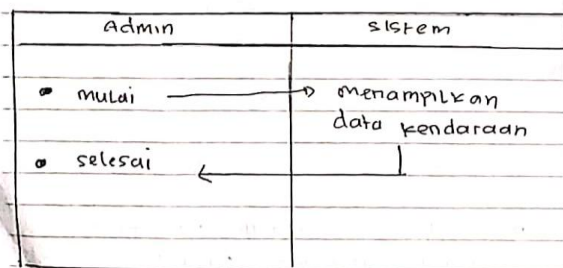 Admin
sistem
mulai
menampilkan
data kendaraan
selesai